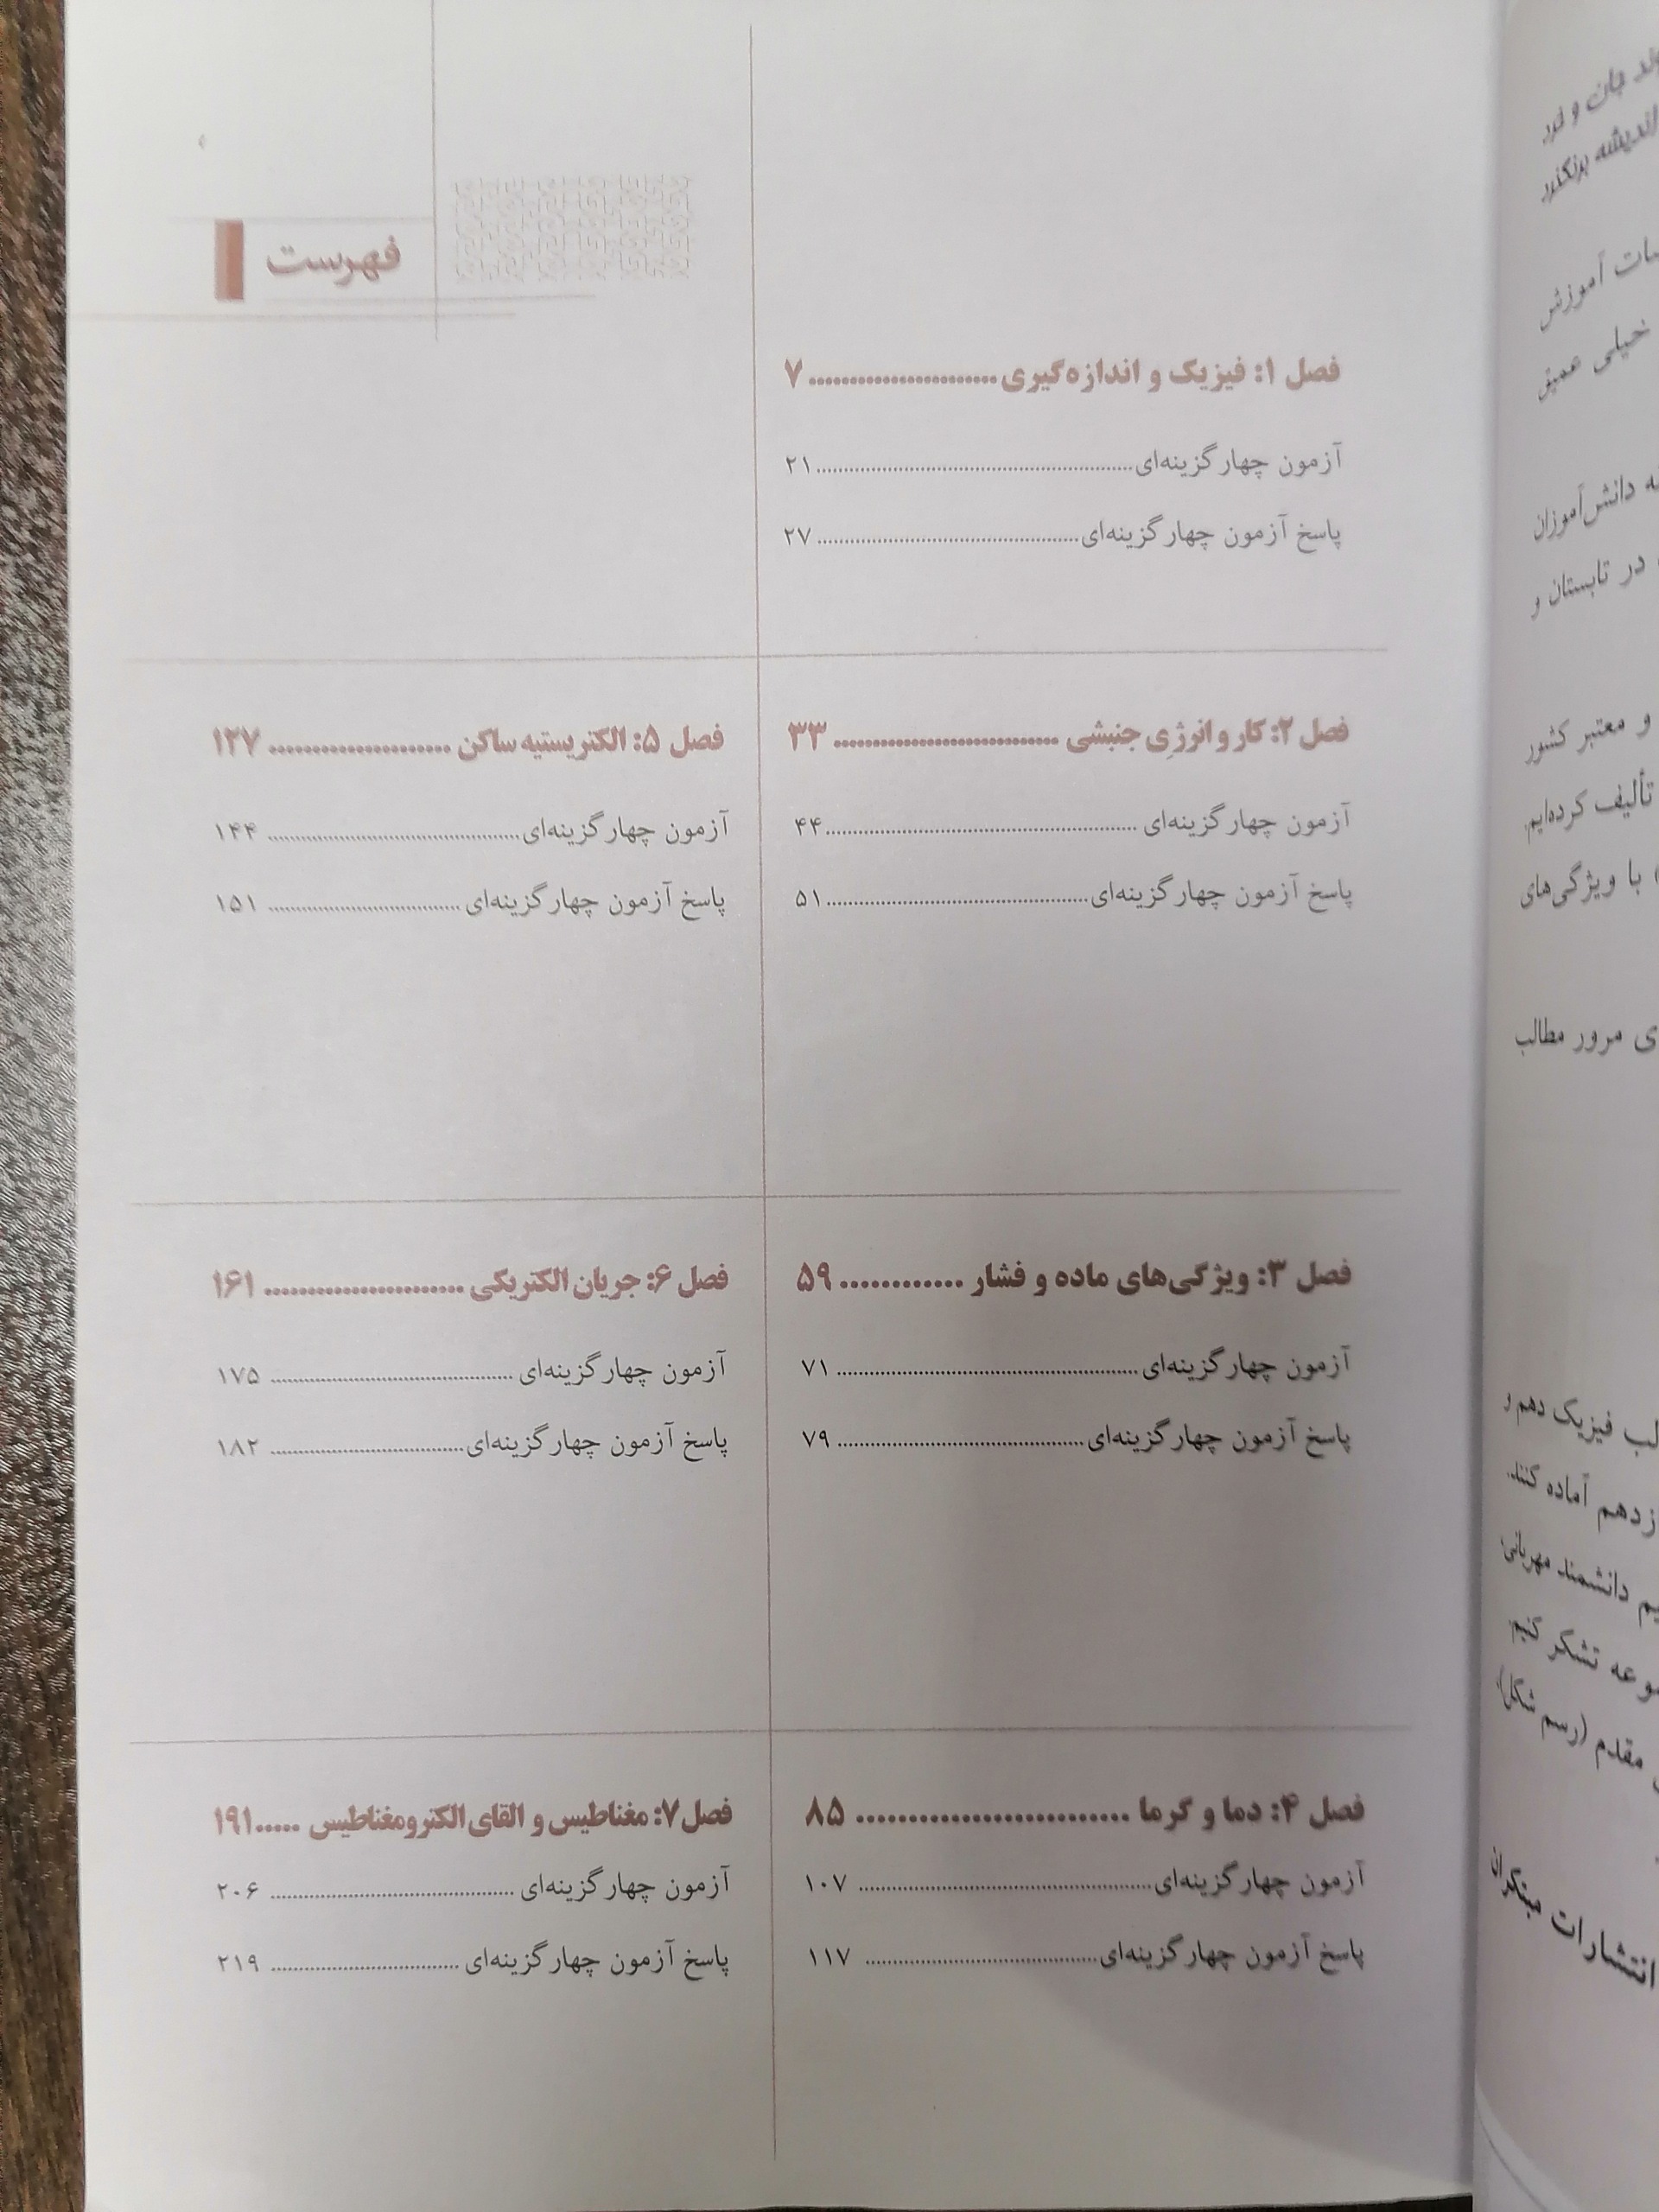 فهرست
فصل ۱: فیزیک و اندازه‌گیری........................ ۷
آزمون چهارگزینه‌ای........................ ۲۱
پاسخ آزمون چهارگزینه‌ای........................ ۲۷
فصل ۲: کار و انرژیِ جنبشی........................ ۳۳
آزمون چهارگزینه‌ای........................ ۴۴
پاسخ آزمون چهارگزینه‌ای........................ ۵۱
فصل ۳: ویژگی‌های ماده و فشار............ ۵۹
آزمون چهارگزینه‌ای........................ ۷۱
پاسخ آزمون چهارگزینه‌ای........................ ۷۹
فصل ۴: دما و گرما........................ ۸۵
آزمون چهارگزینه‌ای........................ ۱۰۷
پاسخ آزمون چهارگزینه‌ای........................ ۱۱۷
فصل ۵: الکتریسیته ساکن..................... ۱۲۷
آزمون چهارگزینه‌ای........................ ۱۴۴
پاسخ آزمون چهارگزینه‌ای........................ ۱۵۱
فصل ۶: جریان الکتریکی....................... ۱۶۱
آزمون چهارگزینه‌ای........................ ۱۷۵
پاسخ آزمون چهارگزینه‌ای........................ ۱۸۲
فصل ۷: مغناطیس و القای الکترومغناطیس.....۱۹۱
آزمون چهارگزینه‌ای........................ ۲۰۶
پاسخ آزمون چهارگزینه‌ای........................ ۲۱۹
جان و خرد
اندیشه برنگذرد
آموزش
خیلی عمیق
دانش‌آموزان
در تابستان و
و معتبر کشور
تألیف کرده‌ایم.
با ویژگی‌های
مرور مطالب
فیزیک دهم و
آماده کنند.
دانشمند مهربانی،
تشکر کنیم.
مقدم (رسم شکل)
انتشارات مبتکران